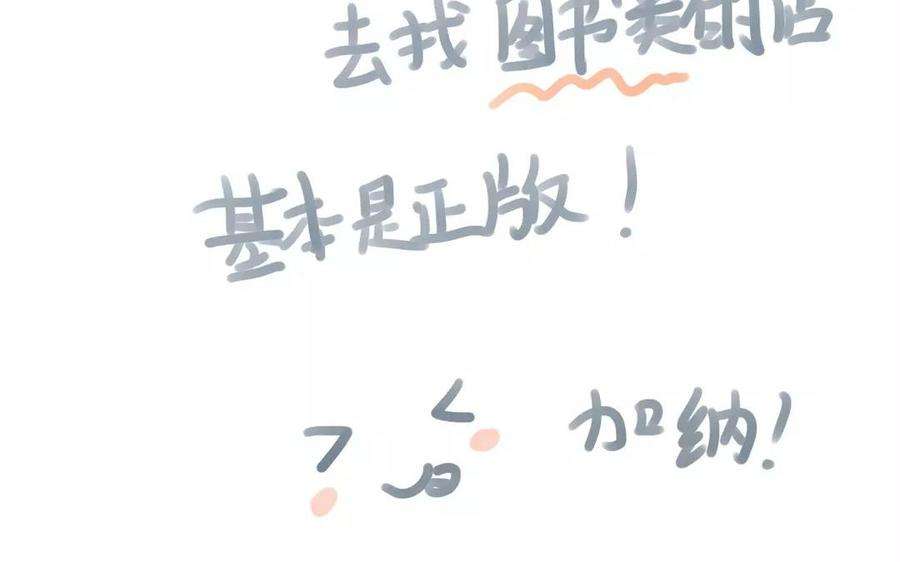 去找图书类的店
基本是正版！
加纳！